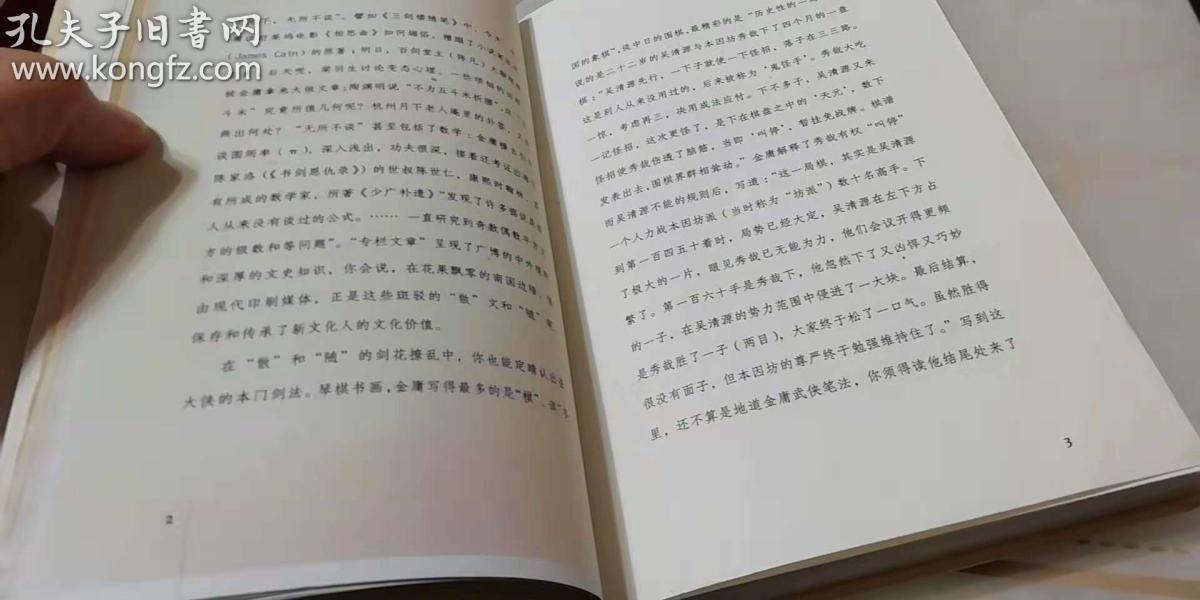 孔夫子旧书网
www.kongfz.com
下，无所不谈”。譬如《三剑楼随笔》中，今天
莱坞电影《相思曲》如何媚俗，糟蹋了小说
(James Cain)的原著；明日，百剑堂主(陈凡)
后天呢，梁羽生讨论变态心理。一些
被金庸拿来大做文章：陶渊明说“不为五斗米折腰”，这
斗米”究竟所值几何呢？杭州月下老人庵里的卦签，
典出何处？“无所不谈”甚至包括了数学：金庸
谈圆周率(π)，深入浅出，功夫很深，接着还考证出
陈家洛(《书剑恩仇录》)的世叔陈世仁，康熙时翰林，
有所成的数学家，所著《少广补遗》“发现了许多
人从来没有谈过的公式。……一直研究到奇数偶数
方的级数和等问题”。“专栏文章”呈现了广博的中外
和深厚的文史知识，你会说，在花果飘零的南国边陲，
由现代印刷媒体，正是这些斑驳的“散”文和“随”笔，
保存和传承了新文化人的文化价值。
在“散”和“随”的剑花撩乱中，你也能定睛认出
大侠的本门剑法。琴棋书画，金庸写得最多的是“棋”。谈“
2
国的象棋”，谈中日的围棋，最精彩的是“历史性的一局
说的是二十二岁的吴清源与本因坊秀哉下了四个月的一盘
棋：“吴清源先行，一下子就使一下怪招，落子在三三路。
这是别人从来没用过的，后来被称为‘鬼怪手’。秀哉大吃
一惊，考虑再三，决用成法应付。下不多子，吴清源又来
一记怪招，这次更怪了，是下在棋盘之中的‘天元’，数下
怪招使秀哉伤透了脑筋，当即‘叫停’，暂挂免战牌。棋谱
发表出去，围棋界群相耸动。”金庸解释了秀哉有权“叫停”
而吴清源不能的规则后，写道：“这一局棋，其实是吴清源
一个人力战本因坊派(当时称为“坊派”)数十名高手。下
到第一百四五十着时，局势已经大定，吴清源在左下方占
了极大的一片，眼见秀哉已无能为力，他们会议开得更频
繁了。第一百六十手是秀哉下，他忽然下了又凶悍又巧妙
的一子，在吴清源的势力范围中侵进了一大块。最后结算，
是秀哉胜了一子(两目)，大家终于松了一口气。虽然胜得
很没有面子，但本因坊的尊严终于勉强维持住了。”写到这
里，还不算是地道金庸武侠笔法，你须得读他结尾处来了
3